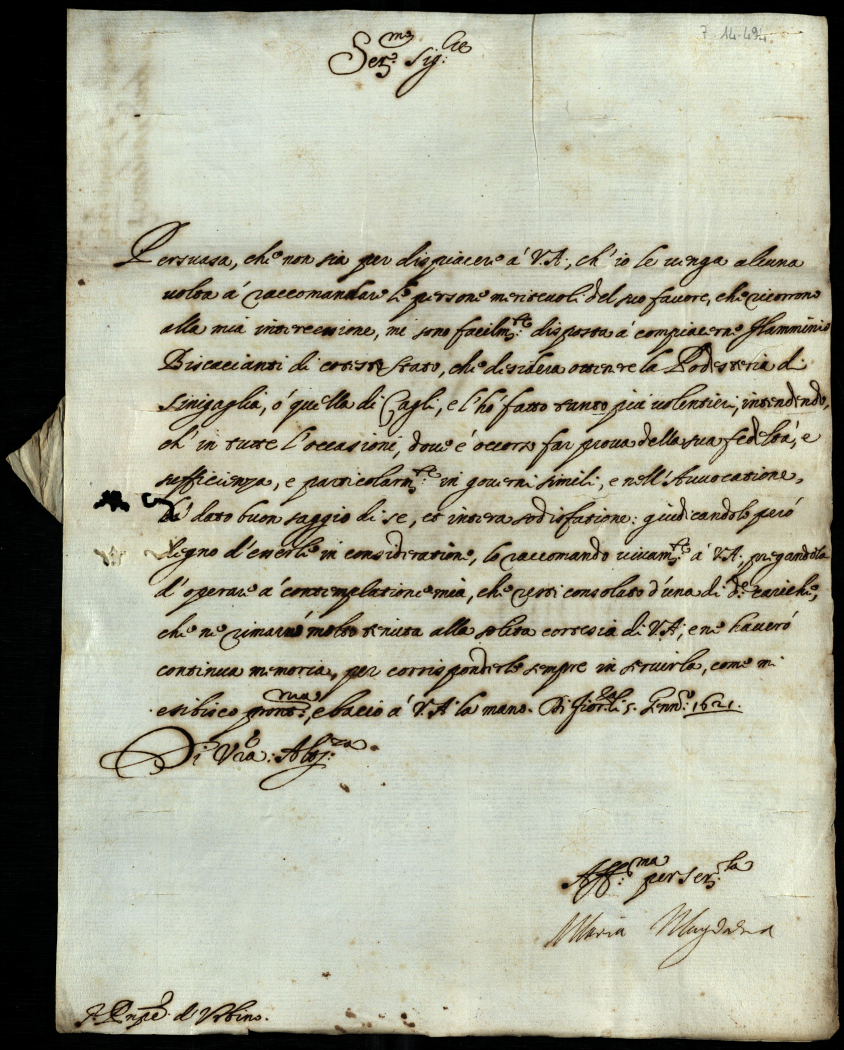 7 14.494.
Ser.mo Sig.re
Persuasa, che non sia per dispiacere á V.A., ch'io le venga alcuna
volta á raccomandare le persone meriteuoli del suo fauore, che ricorrono
alla mia intercessione, mi sono facilm.te disposta á compiacerne Flamminio
Biscacianti di cotesto Stato, che desidera ottenere la Podesteria di
Sinigaglia, ó quella di Cagli, e l'hó fatto tanto piú volentieri, intendendo,
ch'in tutte l'occasioni, doue é occorso far proua della sua fedeltá, e
sufficienza, e particolarm.te in gouerni simili, e nell'Auuocatione,
há dato buon saggio di se, et intera sodisfatione: giudicandolo peró
degno d'esserle in consideratione, lo raccomando viuam.te á V.A., pregandola
d'operare á contemplatione mia, che resti consolato d'una di d.e cariche,
che ne rimarró molto tenuta alla solita cortesia di V.A., e ne haueró
continua memoria, per corrisponderle sempre in seruirla, come mi
esibisco pront.ma, e bacio á V.A. la mano. Di Fior.za li 5. Genn.o 1621.
Di V.ra Altez.za
Aff.ma per ser.la
Maria Magdalena
S.r Pnpe d'Vrbino.